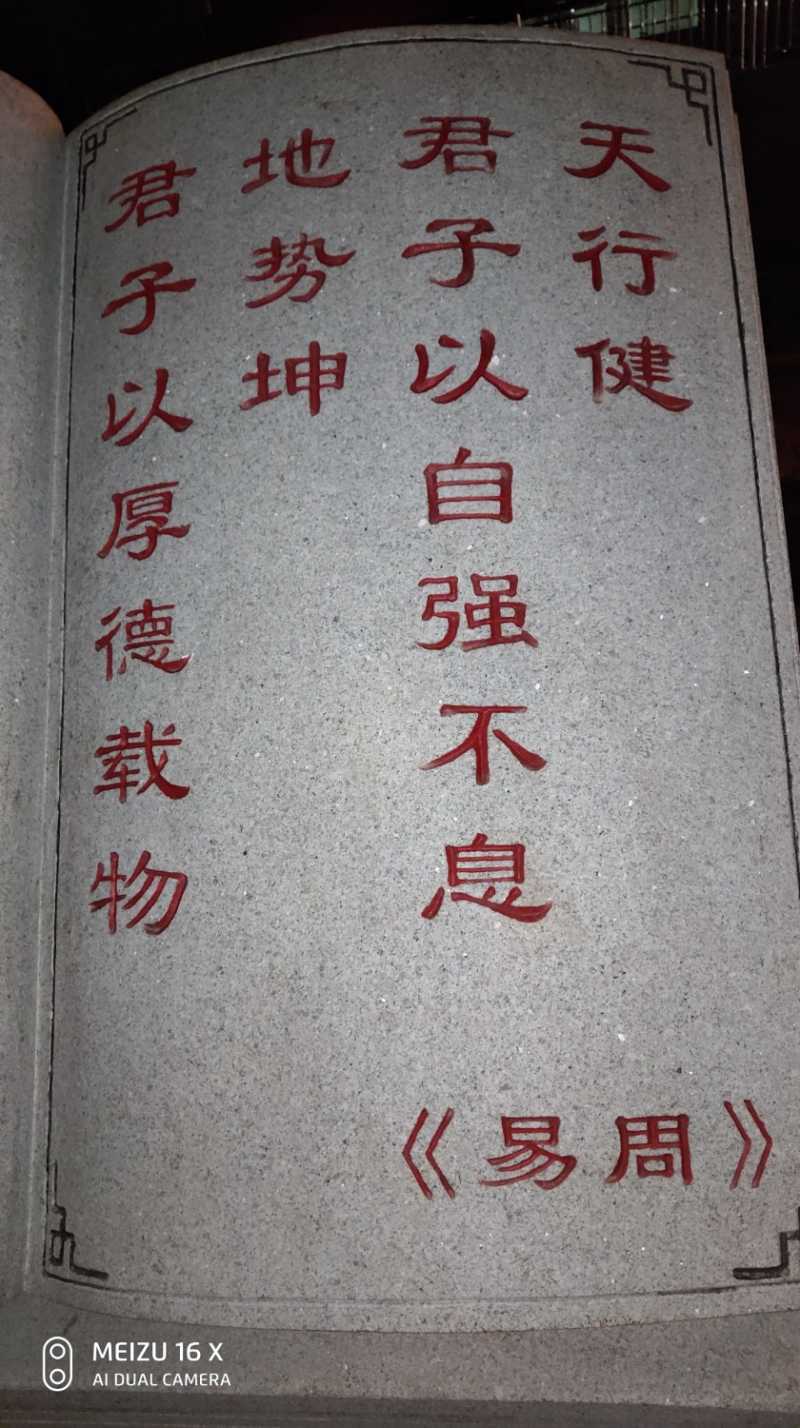 天行健
君子以自强不息
地势坤
君子以厚德载物
《易周》
MEIZU 16 X
AI DUAL CAMERA